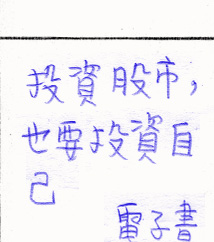 投資股市，
也要投資自
己
電子書